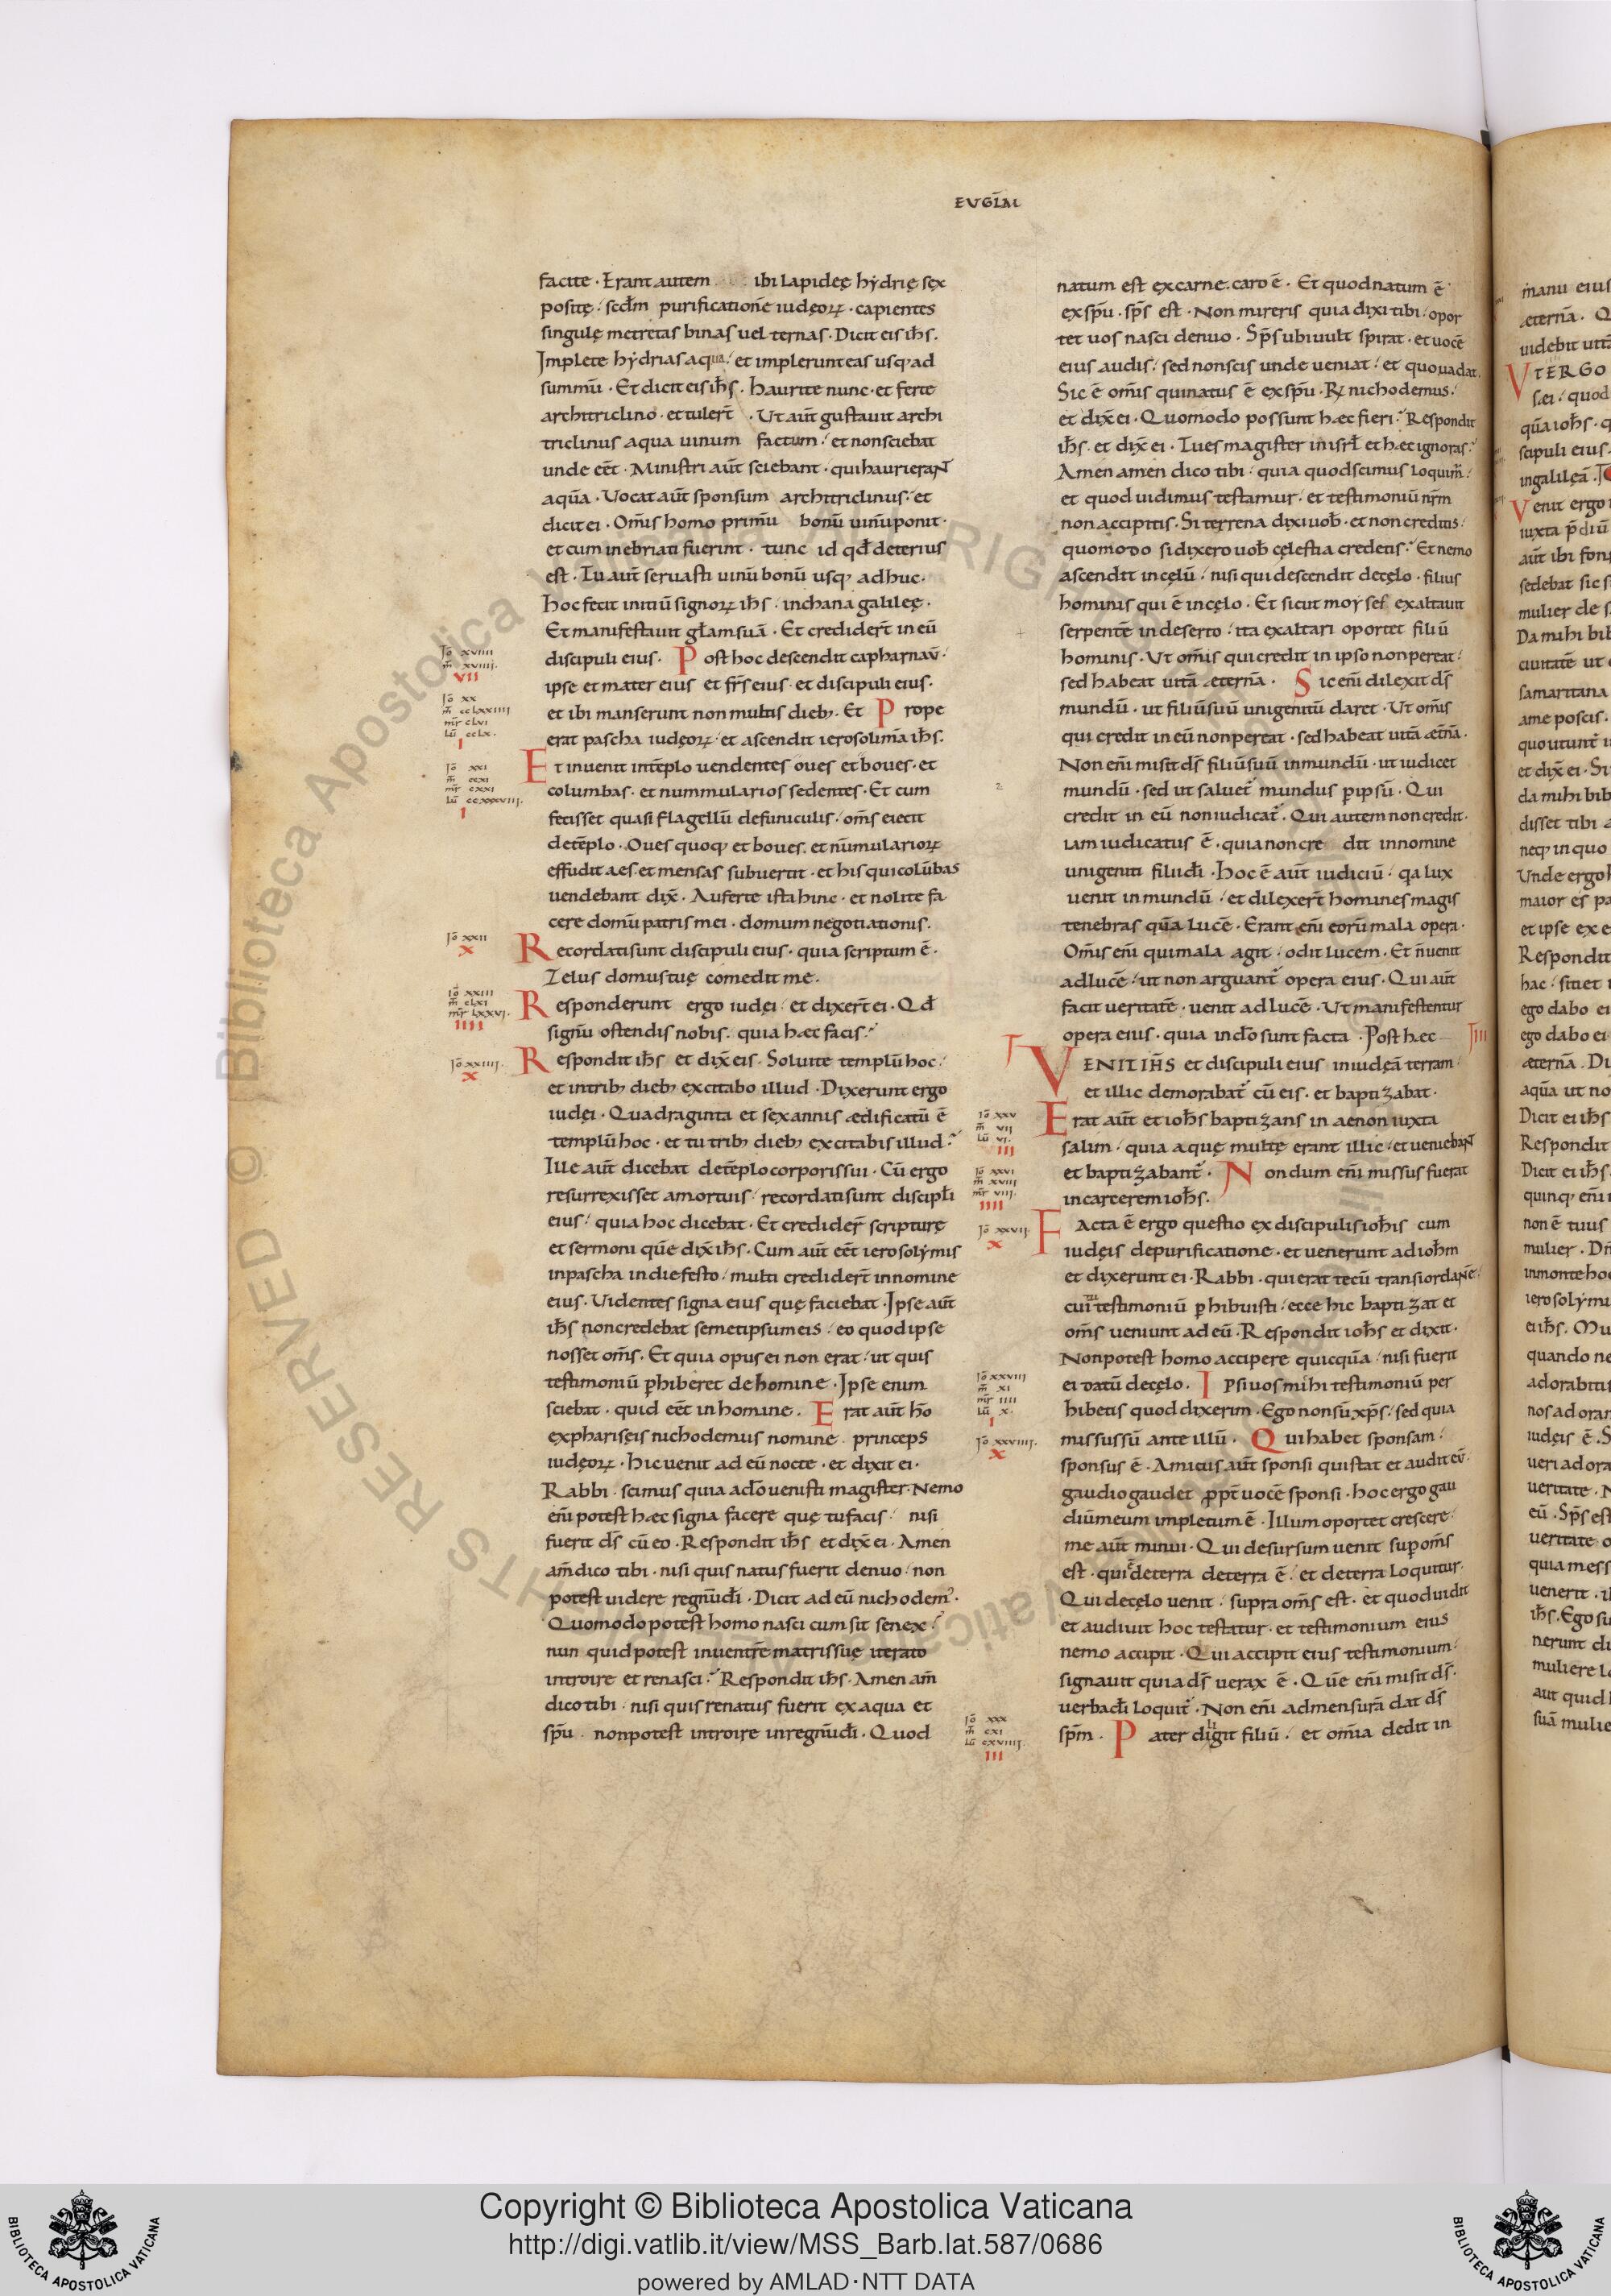 EVGĪAI
facite · Erant autem ibi lapideę hẏdrię sex
positę / scd̄m purificationē iudęoꝝ · capientes
singulę metretas binas uel ternas · Dicit eis ih̄s ·
Implete hẏdrias aqua / et impleruNt eas usq; ad
summū · Et dicit eis ih̄s · haurite nunc · et ferte
architriclino · et tuler̄t · Ut aūt gustauit archi
triclinus aqua uinum factum / et nonsciebat
unde eēt · Ministri aūt sciebant · qui haurieraNT
aquā · Uocat aūt sponsum architriclinus / et
dicit ei · Om̄is homo primū bonū uinū ponit ·
et cum inebriati fuerint · tunc id qd̄ deterius
est · Tu aūt seruasti uinū bonū usq; adhuc ·
hoc fecit initiū signoꝝ ih̄s / inchana galileę ·
Et manifestauit gl̄am suā · Et credider̄t in eū
discipuli eius · Post hoc descendit capharnaū ·
ipse et mater eius et fr̄s eius · et discipuli eius ·
et ibi manserunt non multis dieb; · Et Prope
erat pascha iudęoꝝ · et ascendit ierosolimā ih̄s ·
Et inuenit intēplo uendentes oues et boues · et
columbas · et nummularios sedentes · Et cum
fecisset quasi flagellū defuniculis / om̄s eiecit
detēplo · Oues quoq; et boues · et nūmularioꝝ
effudit aes · et mensas subuertit · et his qui colūbas
uendebant dix̄ · Auferte ista hinc · et nolite fa
cere domū patris mei · domum negotiationis ·
Recordati sunt discipuli eius · quia scriptum ē ·
Zelus domus tuę comedit me ·
Responderunt ergo iudęi / et dixer̄t ei · Qd̄
signū ostendis nobis · quia hæc facis ?
Respondit ih̄s et dix̄ eis · Soluite templū hoc /
et intrib; dieb; excitabo illud · Dixerunt ergo
iudęi · Quadraginta et sex annis ædificatū ē
templū hoc · et tu trib; dieb; excitabis illud ?
Ille aūt dicebat detēplo corporis sui · Cū ergo
resurrexisset amortuis / recordati sunt discipl̄i
eius / quia hoc dicebat · Et credider̄ scripturę
et sermoni quē dix̄ ih̄s · Cum aūt eēt ierosolẏmis
inpascha in die festo / multi credider̄t in nomine
eius · Uidentes signa eius quę faciebat · Ipse aūt
ih̄s non credebat semetipsum eis / eo quod ipse
nosset om̄s · Et quia opus ei non erat / ut quis
testimoniū phiberet de homine · Ipse enim
sciebat · quid eēt in homine · Erat aūt hō
exphariseis nichodemus nomine princeps
iudęoꝝ · hic uenit ad eū nocte · et dixit ei ·
Rabbi · scimus quia ad̄o uenisti magister · Nemo
eni̅ potest hæc signa facere quę tu facis / nisi
fuerit d̄s cū eo · Respondit ih̄s et dix̄ ei · Amen
am̄ dico tibi · nisi quis natus fuerit denuo / non
potest uidere regnū dī · Dicit ad eū nichodem9 ·
Quomodo potest homo nasci cum sit senex ?
nunquid potest inuentre matris suę iterato
introire et renasci ? Respondit ih̄s · Amen am̄
dico tibi · nisi quis renatus fuerit ex aqua et
sp̄u · non potest introire in regnū dī · Quod
Iō XVIIII
m̄ XVIIII.
VII
Iō XX
m̄ CCLXXIIII
mr̄ CLVI
lū CCLX.
I
Iō XXI
m̄ CCXI
mr̄ CXXI
lū CCXXXVIII.
I
Iō XXII
X
Iō XXIII
m̄ CLXI
mr̄ LXXVI.
IIII
Iō XXIIII.
X
natum est ex carne · caro ē · Et quod natum ē
ex sp̄u · sp̄s est · Non mireris quia dixi tibi / opor
tet uos nasci denuo · Sp̄s ubi uult spirat · et uocē
eius audis / sed nonscis unde ueniat / et quo uadat.
Sic ē om̄is qui natus ē ex sp̄u · R̄ nichodemus /
et dix̄ ei · Quomodo possunt hæc fieri ? Respondit
ih̄s · et dix̄ ei · Tu es magister in isrl̄ et hæc ignoras ?
Amen amen dico tibi / quia quod scimus loquim̄ /
et quod uidimus testamur / et testimoniū nr̄m
non accipitis · Si terrena dixi uob̄ · et non creditis /
quomodo si dixero uob̄ cęlestia credetis ? Et nemo
ascendit incęlū / nisi qui descendit decęlo · filius
hominis qui ē incęlo · Et sicut moẏses exaltauit
serpentē in deserto / ita exaltari oportet filiū
hominis · Ut om̄is qui credit in ipso non pereat /
sed habeat uitā æternā · Sic eni̅ dilexit d̄s
mundū · ut filiū suū unigenitū daret · Ut om̄is
qui credit in eū non pereat · sed habeat uitā æt̄nā ·
Non eni̅ misit d̄s filiū suū in mundū · ut iudicet
mundū · sed ut saluet̄ mundus pipsū · Qui
credit in eū non iudicat̄ · Qui autem non credit ·
iam iudicatus ē · quia non cre dit in nomine
unigeniti filii dī · Hoc ē aūt iudiciū / qa lux
uenit in mundū / et dilexer̄t homines magis
tenebras quā lucē · Erant eni̅ eorū mala opera ·
Om̄is eni̅ qui mala agit / odit lucem · Et n̄ uenit
ad lucē / ut non arguant̄ opera eius · Qui aūt
facit ueritatē · uenit ad lucē · Ut manifestentur
opera eius · quia in do̅ sunt facta · Post hæc III
VENIT IH̄S et discipuli eius in iudęā terram /
et illic demorabat̄ cū eis · et baptizabat ·
Erat aūt et ioh̄s baptizans in aenon iuxta
salim / quia aquę multę erant illic / et ueniebaNT
et baptizabant̄ · Nondum eni̅ missus fuerat
in carcerem ioh̄s ·
Facta ē ergo questio ex discipulis ioh̄is cum
iudęis depurificatione · et uenerunt ad ioh̄m
et dixerunt ei · Rabbi · qui erat tecū trans iordaNē /
cui tu testimoniū phibuisti / ecce hic baptizat et
om̄s ueniunt ad eū · Respondit ioh̄s et dixit ·
Non potest homo accipere quicquā / nisi fuerit
ei datū decęlo · Ipsi uos mihi testimoniū per
hibetis quod dixerim · Ego non sū xp̄s / sed quia
missus sū ante illū · Qui habet sponsam /
sponsus ē · Amicus aūt sponsi qui stat et audit eū ·
gaudio gaudet ppt̄ uocē sponsi · hoc ergo gau
diū meum impletum ē · Illum oportet crescere /
me aūt minui · Qui desursum uenit sup om̄s
est · qui ē deterra deterra ē / et deterra loquitur ·
Qui decęlo uenit / supra om̄s est · et quod uidit
et audiuit hoc testatur · et testimonium eius
nemo accipit · Qui accipit eius testimonium /
signauit quia d̄s uerax ē · Quē eni̅ misit d̄s ·
uerba dī loquit̄ · Non eni̅ ad mensurā dat d̄s
sp̄m · Pater diligit filiū / et om̄ia dedit in
Iō XXV
m̄ VII
lū VI.
III
Iō XXVI
m̄ XVIII
mr̄ VIII.
IIII
Iō XXVII.
X
Iō XXVIII
m̄ XI
mr̄ IIII
lū X.
I
Iō XXVIIII.
X
Iō XXX
m̄ CXI
lū CXVIIII.
III
manu eius
æternā · Q
uidebit uitā
VTERGO
quā ioh̄s · q
scipuli eius ·
ingalilęā ·
Venit ergo
iuxta
aūt ibi fons
sedebat sic s
mulier de s
Da mihi bib
ciuitatē ut
samaritana
ame poscis ·
quo utunt̄
et dix̄ ei · Si
da mihi bib
disset tibi a
neq; in quo
Unde ergo h
maior es pa
et ipse ex e
Respondit
hac / sitiet
ego dabo ei
ego dabo ei
æternā · Di
aquā ut no
Dicit ei ih̄s
Respondit
Dicit ei ih̄s
quinq; eni̅
non ē tuus
mulier · Dn̄
in monte hoc
ierosolẏmi
ei ih̄s · Mu
quando ne
adorabitis
nos adoram
iudęis ē · S
ueri adora
ueritate · N
eū · Sp̄s est
ueritate o
quia mess
uenerit ·
ih̄s · Ego su
nerunt di
muliere lo
aut quid l
suā mulie
© Biblioteca Apostolica Vaticana ALL RIGHTS RESERVED
Copyright © Biblioteca Apostolica Vaticana
http://digi.vatlib.it/view/MSS_Barb.lat.587/0686
powered by AMLAD·NTT DATA
BIBLIOTECA APOSTOLICA VATICANA
BIBLIOTECA APOSTOLICA VATICANA